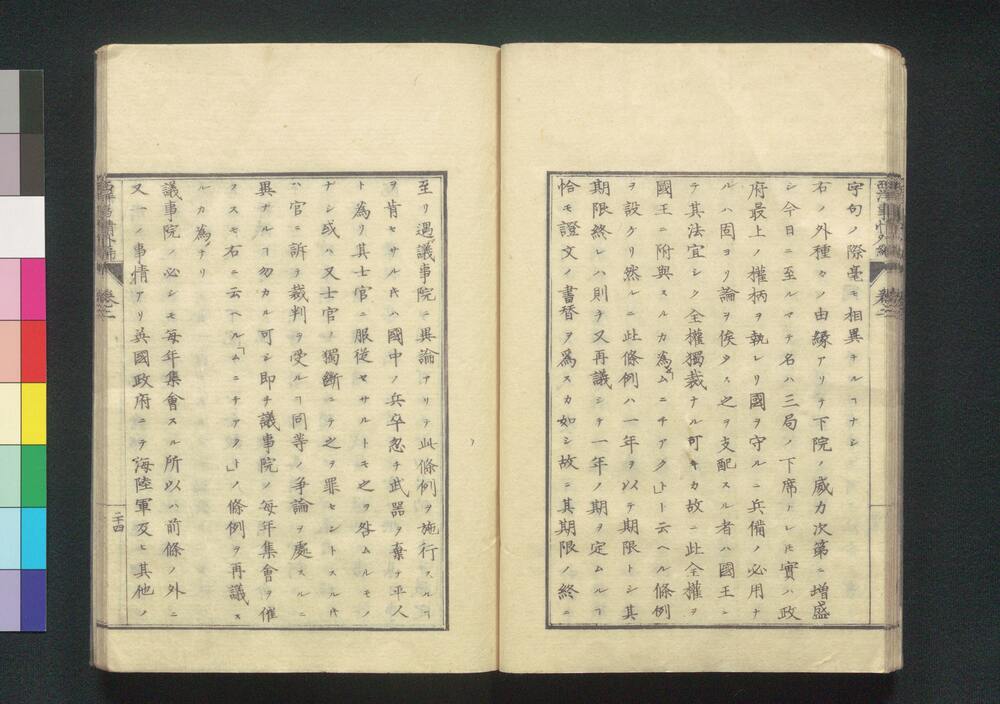 字句ノ際毫モ相異ナルヿナシ
右ノ外種々ノ由縁アリテ下院ノ威力次第ニ増盛
シ今日ニ至ルマテ名ハ三局ノ下席ナレ𪜈實ハ政
府最上ノ權柄ヲ執レリ國ヲ守ルニ兵備ノ必用ナ
ルハ固ヨリ論ヲ俟タス之ヲ支配スル者ハ國王ニ
テ其法宜シク全權獨裁ナル可キカ故ニ此全權ヲ
國王ニ附與スルカ為ムニチアクト」ト云ヘル條例
ヲ設ケリ然ルニ此條例ハ一年ヲ以テ期限トシ其
期限終レハ則チ又再議シテ一年ノ期ヲ定ムルヿ
恰モ證文ノ書替ヲ為スカ如シ故ニ其期限ノ終ニ
至リ遇議事院ニ異論アリテ此條例ヲ施行スルヿ
ヲ肯セサル𪜈ハ國中ノ兵卒忽チ武器ヲ棄テ平人
ト為リ其士官ニ服從セサルトモ之ヲ咎ムルモノ
ナシ或ハ又士官ノ獨斷ニテ之ヲ罪セントスル𪜈
ハ官ニ訴テ裁判ヲ受ルヿ同等ノ爭論ヲ處スルニ
異ナルヿ勿カル可シ即チ議事院ノ毎年集會ヲ催
スモ右ニ云ヘル「ムニチアクト」ノ條例ヲ再議ス
ルカ為ナリ
議事院ノ必シモ毎年集會スル所以ハ前條ノ外ニ
又一ノ事情アリ英國政府ニテ海陸軍及ヒ其他ノ
西洋事情外編
卷二
二十四